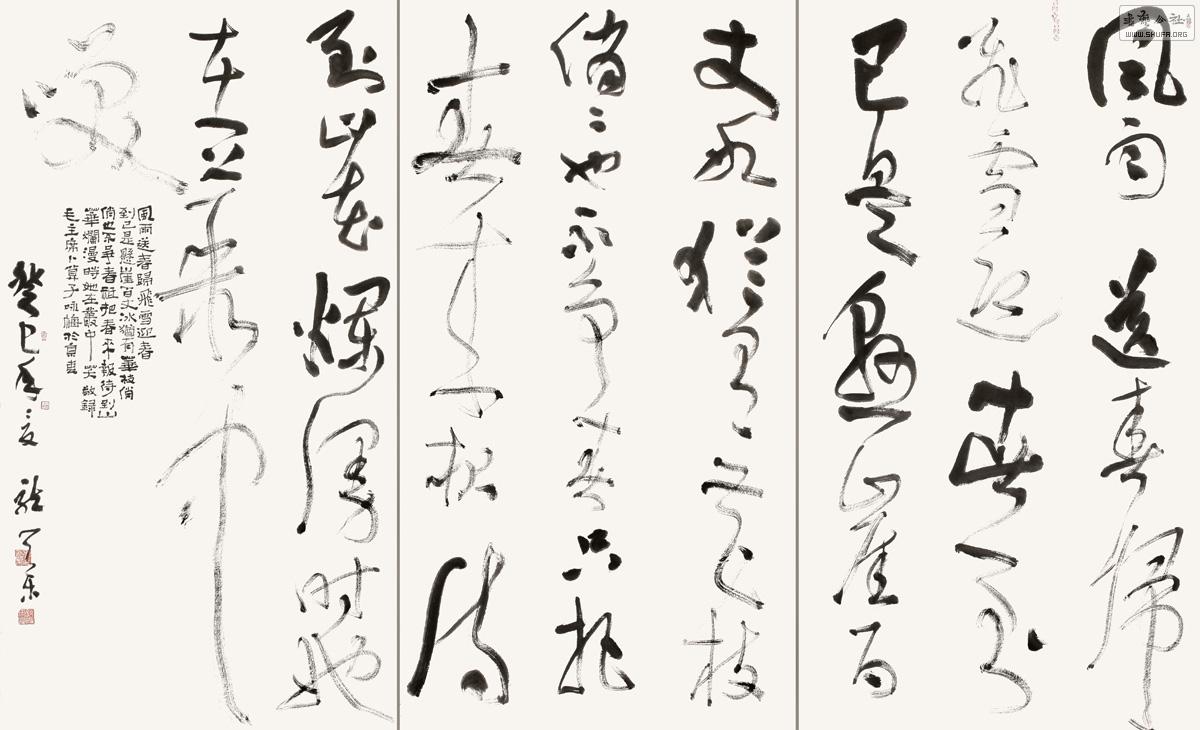 書法公社
WWW.SHUFA.ORG
風雨送春歸
飛雪迎春到
已是懸崖百
丈冰猶有花枝
俏〻也不爭春只把
春來報待
到山花爛漫時她
在叢中
笑
風雨送春歸飛雪迎春
到已是懸崖百丈冰猶有華枝俏
俏也不爭春祇把春來報待到山
華爛漫時她在叢中笑敬錄
毛主席卜算子咏梅於
癸巳年之夏